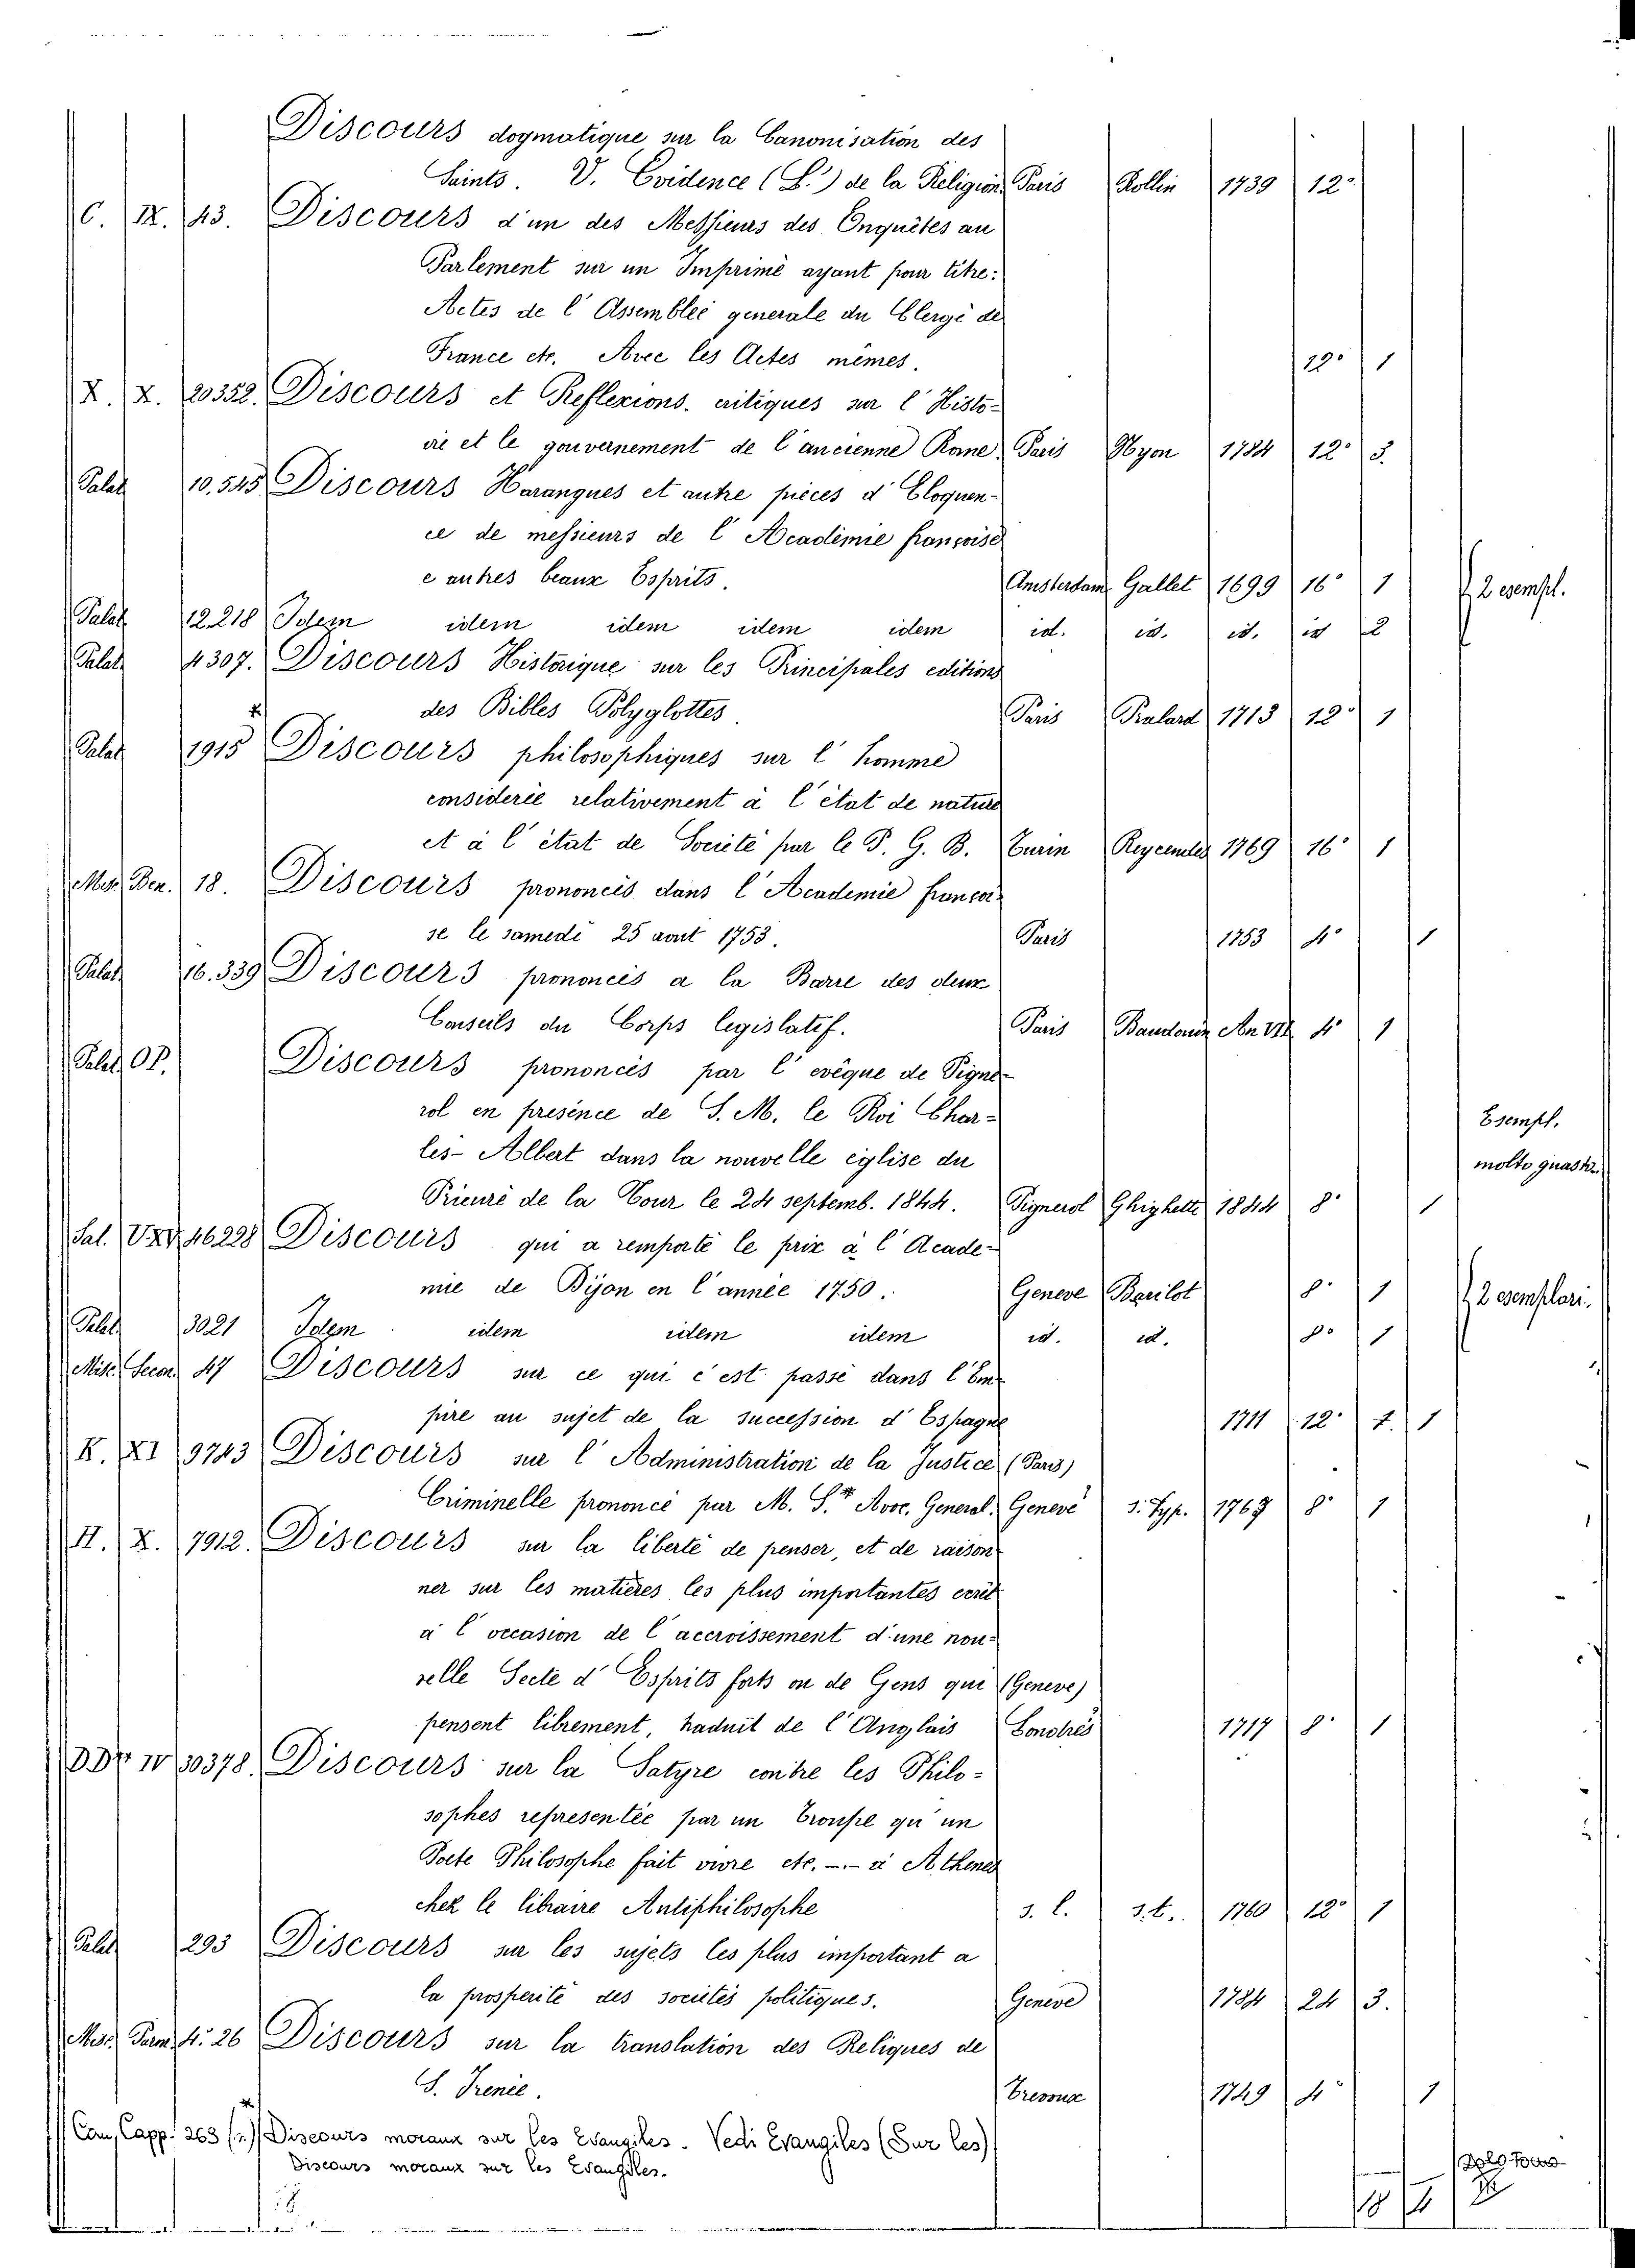 Discours dogmatique sur la Canonisation des
Saints. V. Evidence (L.) de la Religion Paris Rollin 1739 12°
C. IX. 43. Discours d'un des Messieurs des Enquêtes au
Parlement sur un Imprimé ayant pour titre:
Actes de l'Assemblée generale du Clergé de
France etc. Avec les Actes mêmes. 12° 1
X. X. 20352. Discours et Reflexions critiques sur l'Histo-
ire et le gouvernement de l'ancienne Rome. Paris Nyon 1784 12° 3.
Palat 10.545 Discours Harangues et autre pièces d'Eloquen-
ce de messieurs de l'Académie françoise
e autres beaux Esprits. Amsterdam Gallet 1699 16° 1 2 esempl.
Palat 12.218 Idem idem idem idem idem id. id. id. id 2
Palat 4307. Discours Historique sur les Principales editions
des Bibles Polyglottes. Paris Pralard 1713 12° 1
Palat 1915 Discours philosophiques sur l'homme
considerée relativement à l'état de nature
et à l'état de Société par le P. G. B. Turin Reycendes 1769 16° 1
Misc. Ben. 18. Discours prononcés dans l'Academie françoi-
se le samedi 25 aout 1753. Paris 1753 4° 1
Palat 16.339 Discours prononcés a la Barre des deux
Conseils du Corps legislatif. Paris Baudouin An VII 4° 1
Palat OP. Discours prononcés par l'evêque de Pigne-
rol en presénce de S. M. le Roi Char- Esempl.
les-Albert dans la nouvelle église du molto guasto.
Prieuré de la Tour le 24 septemb. 1844. Pignerol Ghighetti 1844 8° 1
Sal. 46228 Discours qui a remporté le prix à l'Acade-
mie de Dijon en l'année 1750. Geneve Barilot 8° 1 2 esemplari.
Palat 3021 Idem idem idem idem id. id. 8° 1
Misc. Secon. 47 Discours sur ce qui c'est passé dans l'Em-
pire au sujet de la succession d'Espagne 1711 12° 1
K. XI 9743 Discours sur l'Administration de la Justice (Paris)
Criminelle prononcé par M. S.** Avoc. General. Geneve s. Typ. 1767 8° 1
H. X. 7912. Discours sur la liberté de penser, et de raison-
ner sur les matières les plus importantes ecrit
à l'occasion de l'accroissement d'une nou-
velle Secte d'Esprits forts ou de Gens qui (Geneve)
pensent librement, traduit de l'Anglais Londrés 1717 8° 1
IV 30378. Discours sur la Satyre contre les Philo-
sophes representée par un Troupe qu'un
Poete Philosophe fait vivre etc. -.- à Athenes
chez le libraire Antiphilosophe s. l. s. t. 1760 12° 1
Palat 293 Discours sur les sujets les plus important a
la prosperité des sociétés politiques. Geneve 1784 24 3.
Misc. Parm. 4. 26 Discours sur la translation des Reliques de
S. Irenée. Trevoux 1749 4° 1
Cam. Capp. 263 (n.) Discours moraux sur les Evangiles. Vedi Evangiles (Sur les)
Discours moraux sur les Evangiles.
18